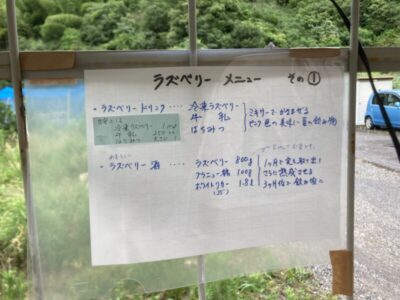 ラズベリー メニュー その①
・ラズベリードリンク ‥‥ 冷凍ラズベリー
牛乳
はちみつ
ミキサーで
ピンク色の美味しい 飲み物
冷凍ラズベリー
牛乳
はちみつ
・ラズベリー酒 ‥‥ ラズベリー 800g
グラニュー糖 100g
ホワイトリカー 1.8ℓ
1ヶ月で実を取り出し
さらに熟成させる
3ヶ月位で飲み頃に